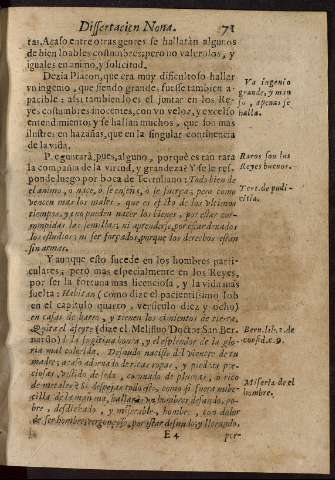 Dissertacion Nona. 71
tas. Acaso entre otras gentes se hallaràn algunos
de bien loables costumbres; pero no valerosos, y
iguales en animo, y solicitud.
Dezia Platon, que era muy dificultoso hallar
vn ingenio, que siendo grande, fuesse tambien a-
pacible: assi tambien lo es el juntar en los Re-
yes costumbres inocentes, con vn veloz, y excelso
entendimiento, y se hallan muchos, que son mas
ilustres en hazañas, que en la singular continencia
de la vida.
Vn ingenio
grande, y man
so, apenas se
halla.
Preguntarà, pues, alguno, porquè es tan rara
la compañia de la virtud, y grandeza? Y se le res-
ponde luego por boca de Tertuliano: Todo bien de
el animo, ò nace, ò se enseña, ò se fuerça; pero como
vencen mas los males, que es esto de los vltimos
tiempos, ya no pueden nacer los bienes, por estar cor-
rompidas las semillas; ni aprenderse, por estar dexados
los estudios; ni ser forçados, porque los derechos estàn
sin armas.
Raros son los
Reyes buenos.
Tert. de pudi-
citia.
Y aunque esto sucede en los hombres parti-
culares; pero mas especialmente en los Reyes,
por ser la fortuna mas licenciosa, y la vida mas
suelta: Habitan (como dize el pacientissimo Iob
en el capitulo quarto, versiculo diez y ocho)
en casas de barro, y tienen los cimientos de tierra.
Quita el afeyte (dize el Melifluo Doctor San Ber-
nardo) à la fugitiva honra, y el esplendor de la glo-
ria mal colorida. Desnudo naciste del vientre de tu
madre; acaso adornado de ricas ropas, y piedras pre-
ciosas, vestido de seda, coronado de plumas, ò rico
de metales? Si despejas todo esto, como si fuera nube-
cilla de la mañana, hallaràs vn hombre desnudo, po-
bre, desdichado, y miserable, hombre, con dolor
de ser hombre; vergonçoso, por estar desnudo, y llorando,
Bern. lib. 2. de
consid. c. 9.
Miseria de el
hombre.
E 4 por-